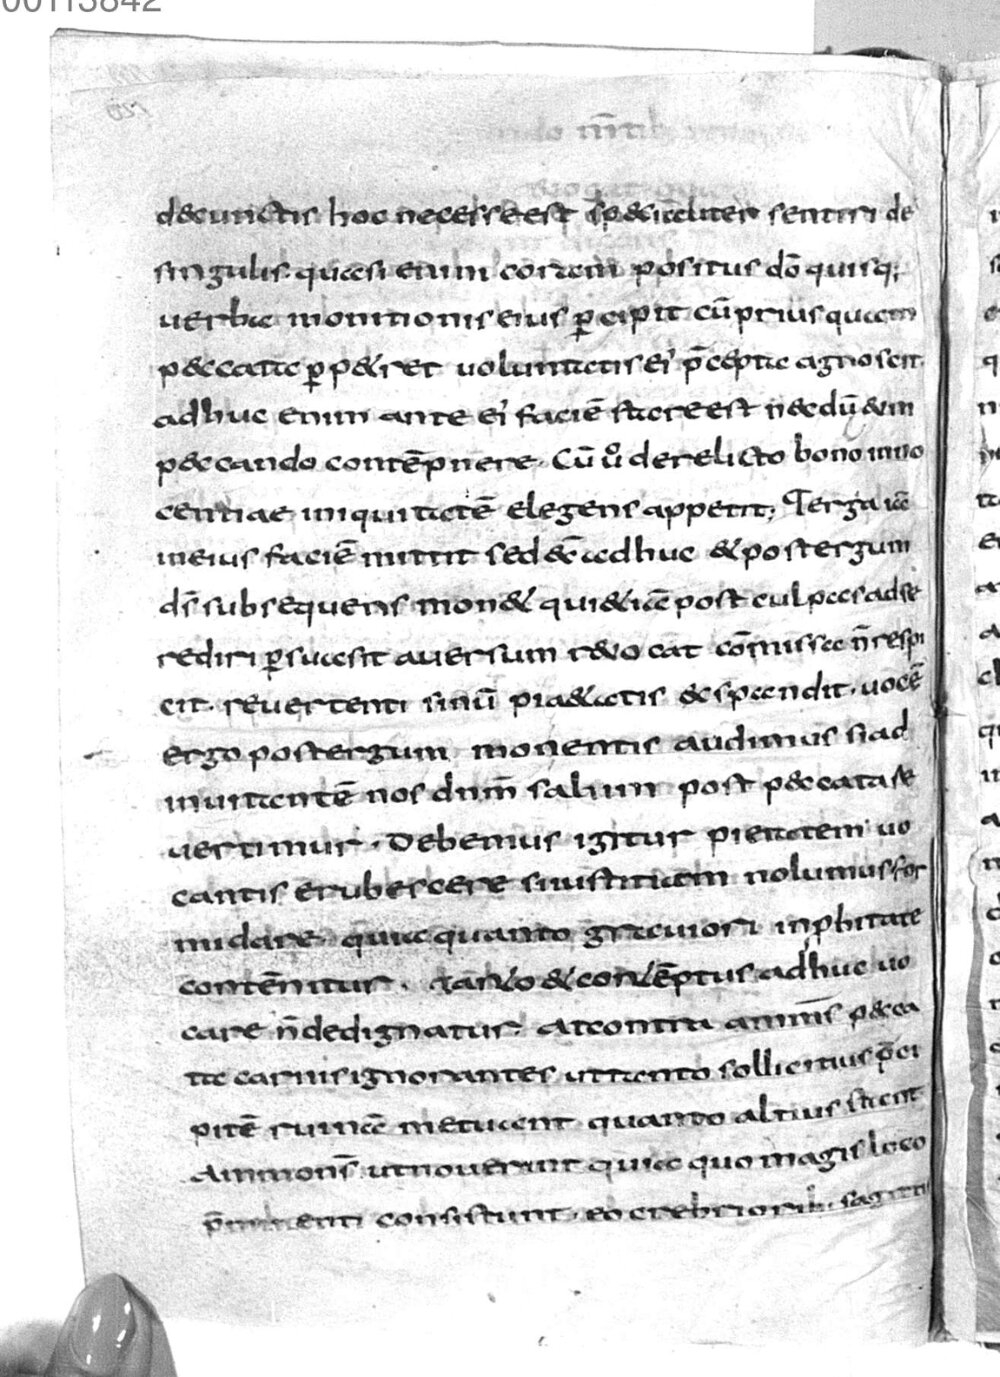 00113842
decunctis hoc necesse est specialiter sentiri de
singulis. quasi enim coram positus dō quisq;
uerba monitionis eius p̱cipit cū prius quam
peccata p̱p&ret uoluntatis ei' p̄cepta agnoscit
adhuc enim ante ei' faciē stare est necdū eum
peccando contēpnere. Cū ů derelicto bono inno
centiae iniquitatē elegens appetit; Terga iā
in eius faciē mittit sed ecce adhuc & post ergum
ds̄ subsequens mon& qui &iā post culpas ad se
rediri p̱suasit auersum reuocat cōmissa n̄ respi
cit. reuertenti sinū pi&atis expandit. uocē
ergo post ergum monentis audimus si ad
inuitantē nos dn̄m saltim post peccata re
uertimur. Debemus igitur pietatem uo
cantis erubescere si iustitiam nolumus for
midare. quia quanto grauiori inp̱bitate
contēnitur. Tanto & contēptus adhuc uo
care n̄ dedignatur. At contra ammōs pecca
ta carnis ignorantes ut tanto sollicitius p̄ci
pitē ruinā metuant quanto altius stant
Ammonēs ut nouerint quia quo magis loco
p̄minenti consistunt. eo crebriorib; sagitti